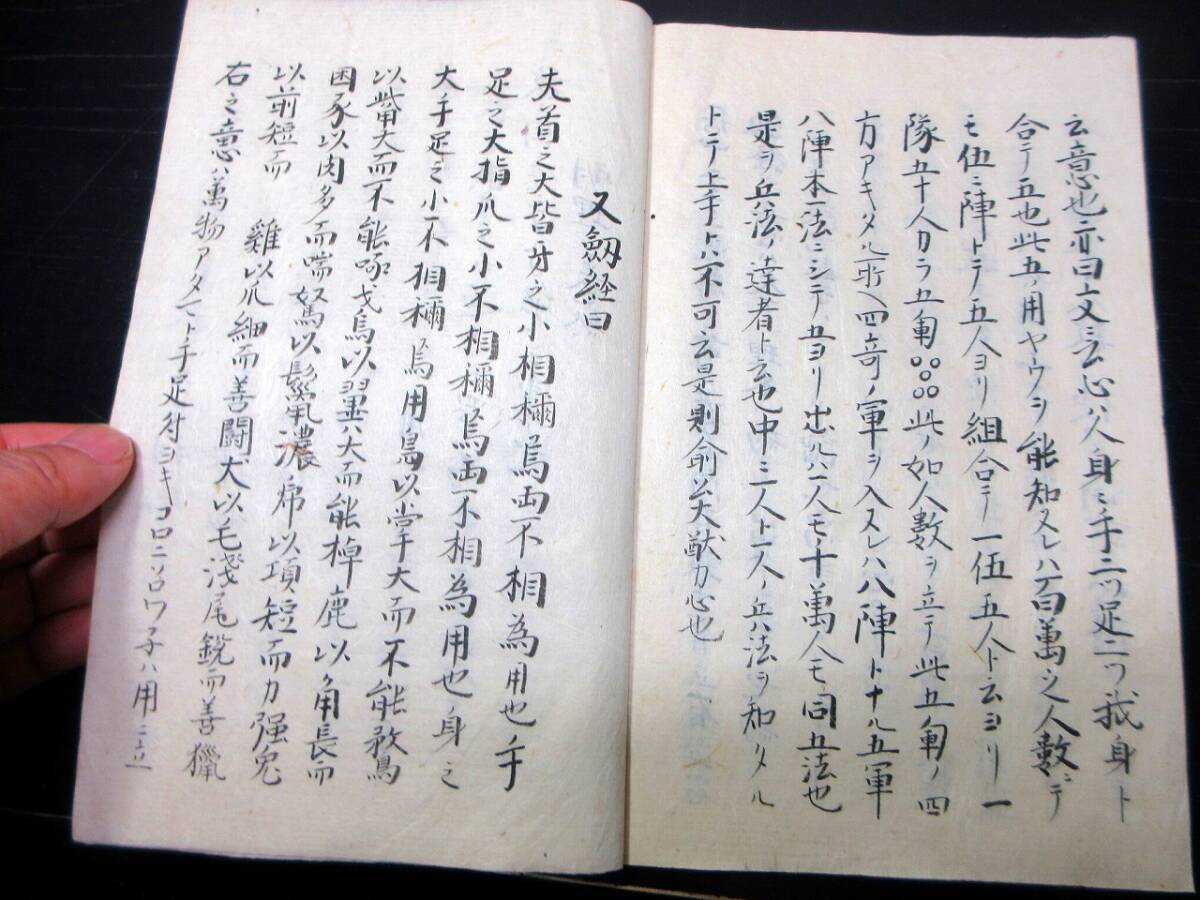 云意也亦曰文ニ云心ハ人身ニ手二ツ足二ツ我身ト
合テ五也此五ノ用ヤウヲ能知ヌレハ百萬之人數ニテ
モ伍ニ陣トテ五人ヨリ組合テ一伍五人ト云ヨリ一
隊五十人カラ五甸○○○○○此ノ如人数ヲ立テ此五甸ノ四
方アキタル所ヘ四竒ノ軍ヲ入ヌレハ八陣トナル五軍
八陣本一法ニシテ五ヨリ出ル八人モ十萬人モ同五法也
是ヲ兵法ノ達者ト云也中ニ二人ト一人ノ兵法ヲ知タル
トテ上手トハ不可云是則俞公大猷カ心也
又劔経曰
夫首之大皆牙之小相稱焉両不相為用也手
足之大指爪之小不相稱焉両不相為用也身之
大手足之小不相稱焉用鳥以掌大而不能
以觜大而不能啄弋鳥以翼大而能 鹿以角長而
困豕以肉多而喘駑以鬃濃 以項短而力强兔
以前短而 雞以爪細而善闘犬以毛淺尾鋭而善獵
右之意ハ萬物アタマト手足 ヨキコロニソロワ子ハ用ニ立